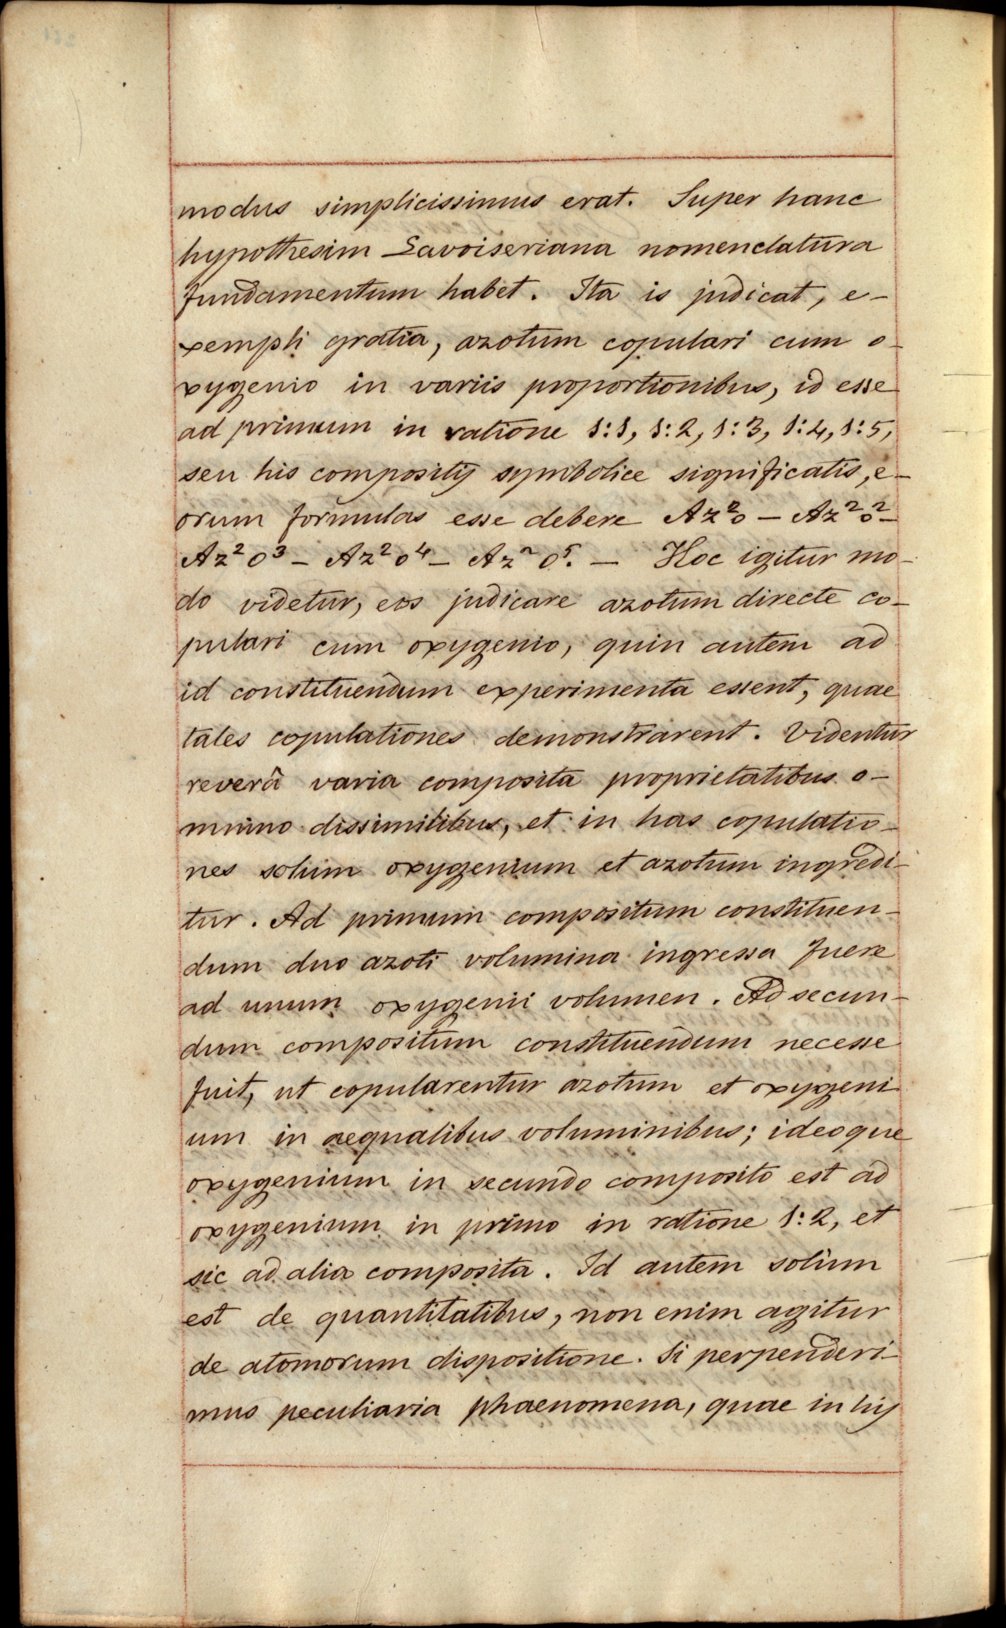 modus simplicissimus erat. Super hanc
hypothesim Lavoiseriana nomenclatura
fundamentum habet. Ita is judicat, e-
xempli gratia, azotum copulari cum o-
xygenio in variis proportionibus, id esse
ad primum in ratione 1:1, 1:2, 1:3, 1:4, 1:5,
seu his compositis symbolice significatis, e-
orum formulas esse debere Az²o – Az²o² –
Az²o³ – Az²o⁴ – Az²o⁵. – Hoc igitur mo-
do videtur, eos judicare azotum directe co-
pulari cum oxygenio, quin autem ad
id constituendum experimenta essent, quae
tales copulationes demonstrarent. Videntur
reverâ varia composita proprietatibus o-
mnino dissimilibus, et in has copulatio-
nes solum oxygenium et azotum ingredi-
tur. Ad primum compositum constituen-
dum duo azoti volumina ingressa fuere
ad unum oxygenii volumen. Ad secun-
dum compositum constituendum necesse
fuit, ut copularentur azotum et oxygeni
um in aequalibus voluminibus; ideoque
oxygenium in secundo composito est ad
oxygenium in primo in ratione 1:2, et
sic ad alia composita. Id autem solum
est de quantitatibus, non enim agitur
de atomorum dispositione. Si perpenderi-
mus peculiaria phaenomena, quae in his